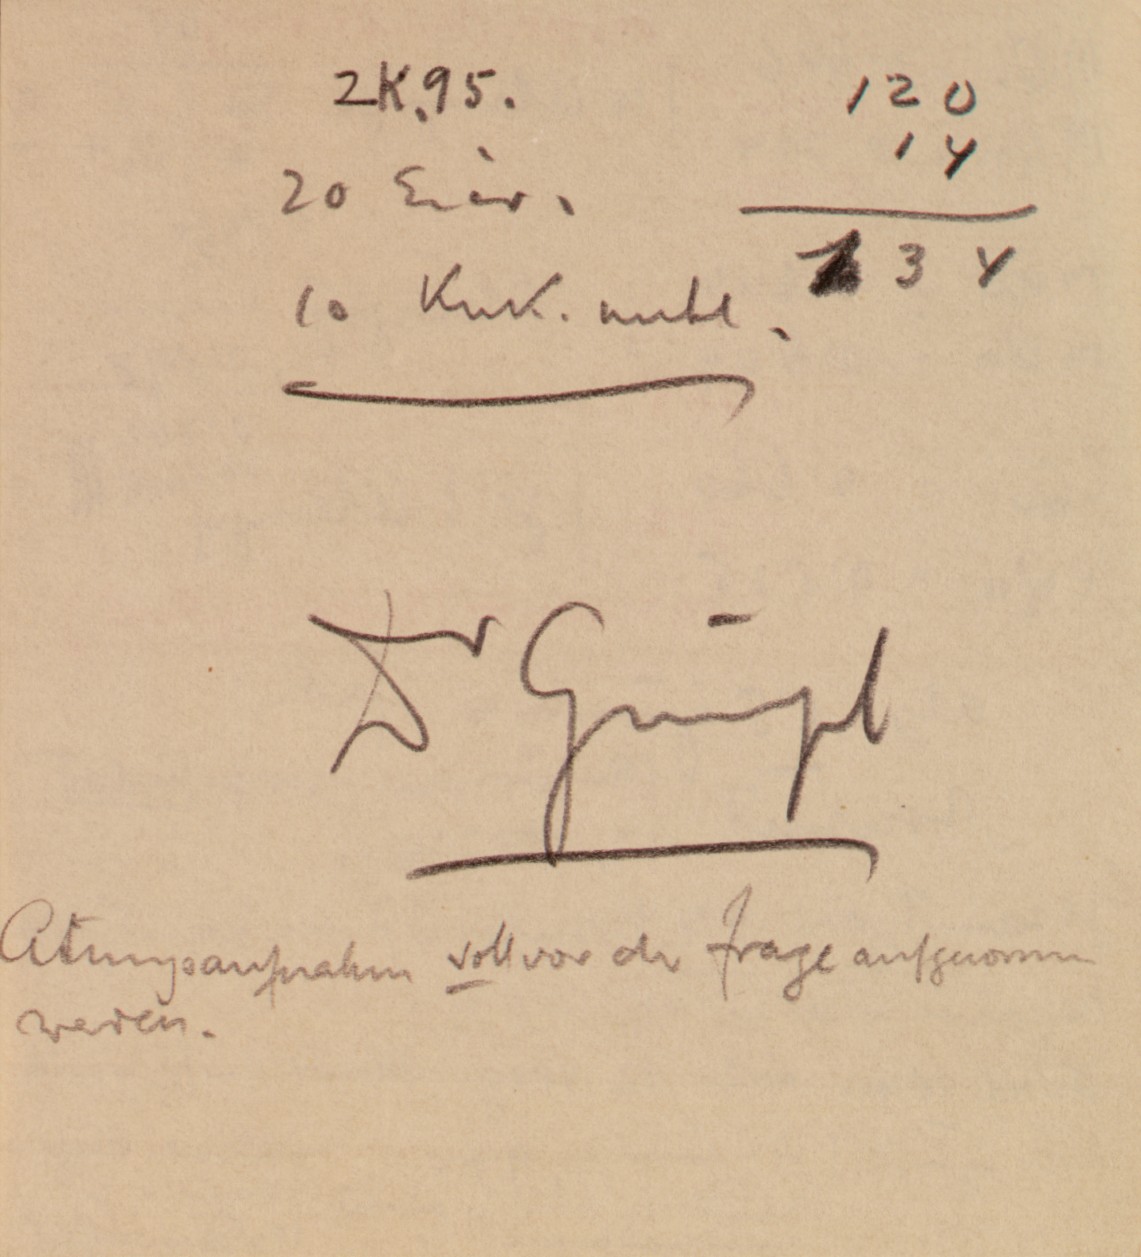 2K.95.
20 Eier.
10 Kuk. mehl.
120
14
134
Dr
Atmungsaufnahm soll vor der Frage aufgenomm
werden.